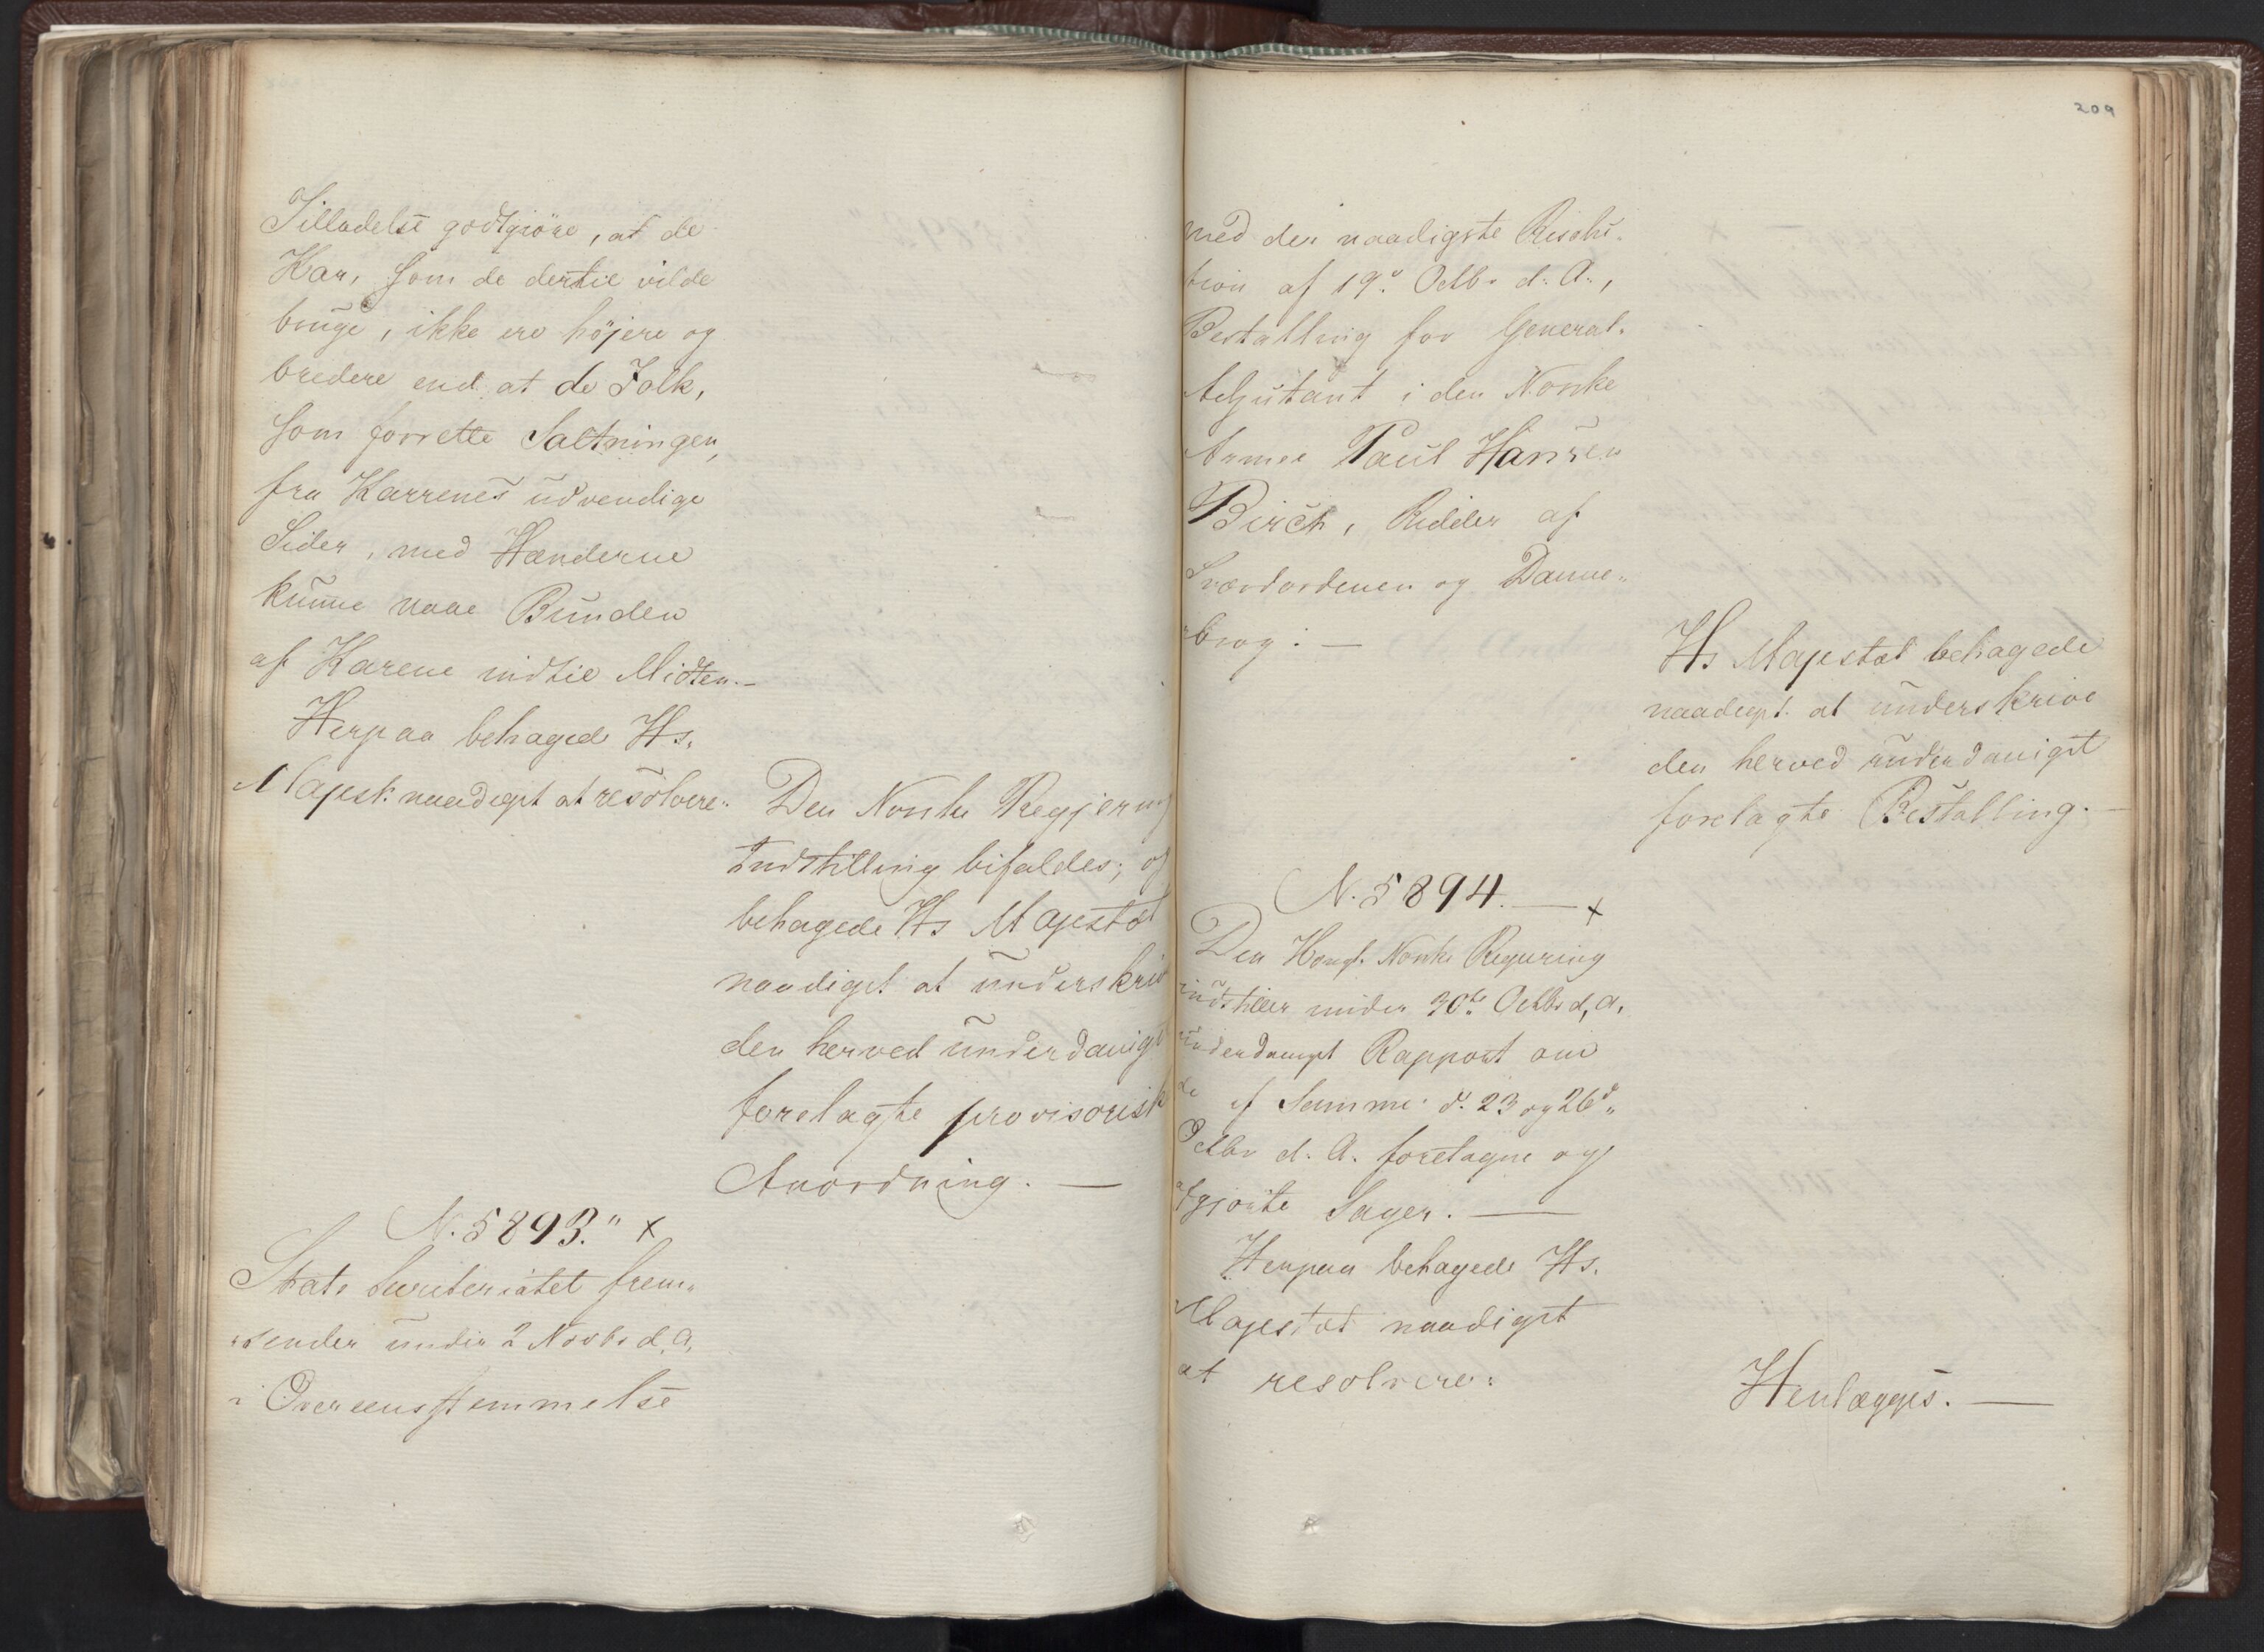 Tilladelse godtgiöre, at de
Kar, som de dertil vilde
bruge, ikke ere höjere og
bredere end at de Folk,
som forrette Saltningen,
fra Karrenes udvendige
Sider, med Hænderne
kunne naae Bunden
af Karene indtil Midten.—
Herpaa behagede Hs.
Majest: naadigst at resolvere:
Den Norske Regjerings
Indstilling bifaldes; og
behagede Hs Majestæt
naadigst at underskrive
den herved underdanigst
forelagte provisorisk
Anordning. —
N. 5893." x
Stats Secreteriatet frem„
„sender under 2 Novbr d. A.
i Overeensstemmelse
209
med den naadigste Resolu-
tion af 19de Octbr d. A.,
Bestalling for General-
Adjutant i den Norske
Armee Paul Hansen
Birch, Ridder af
Sværdordenen og Danne„
„brog. —
Hs Majestæt behagede
naadigst at underskrive
den herved underdanigst
forelagte Bestalling. —
N. 5894. — x
Den Kongl. Norske Regjering
indstiller under 30te Octbr d. A.
underdanigst Rapport om
de af Samme d. 23 og 26d„
Octbr d. A. foretagne og
afgjorte Sager. —
Herpaa behagede Hs.
Majestæt naadigst
at resolvere:
Henlægges. —